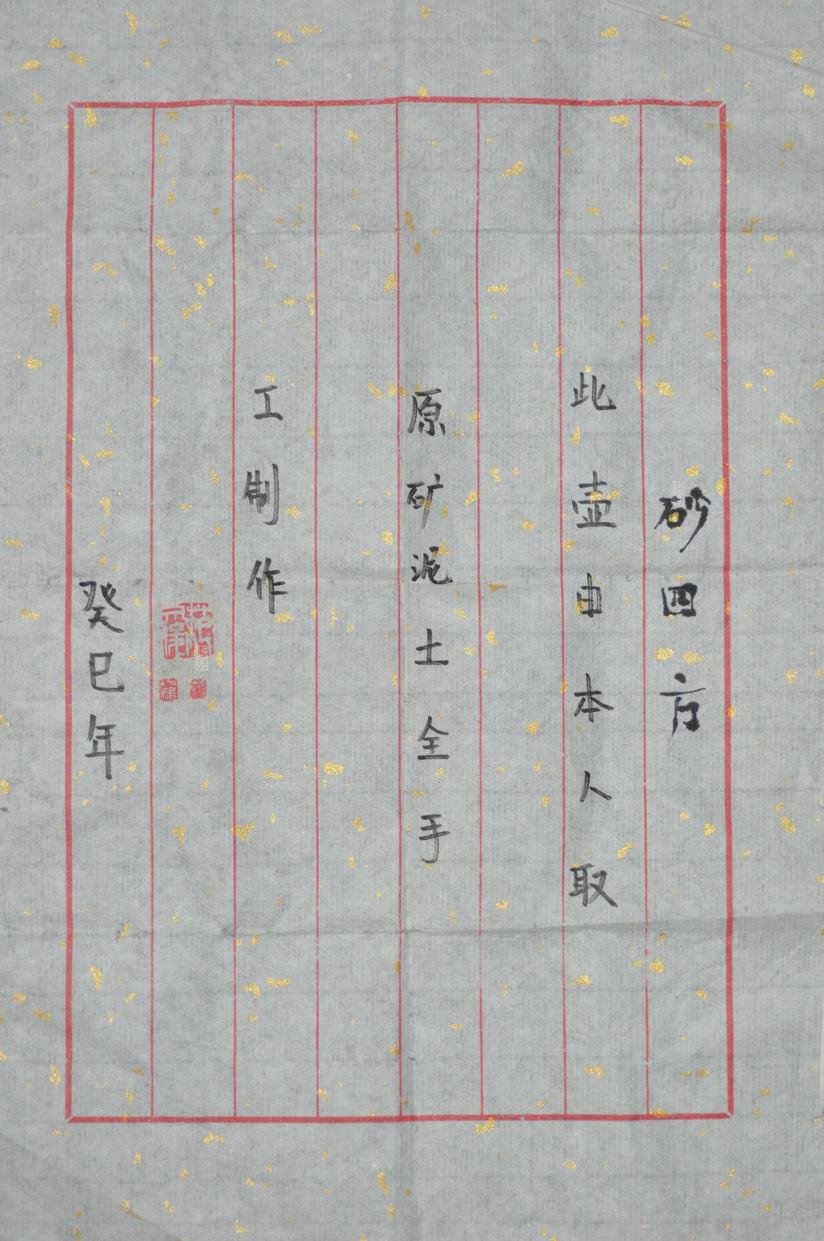 砂四方
此壶由本人取
原矿泥土全手
工制作
癸巳年